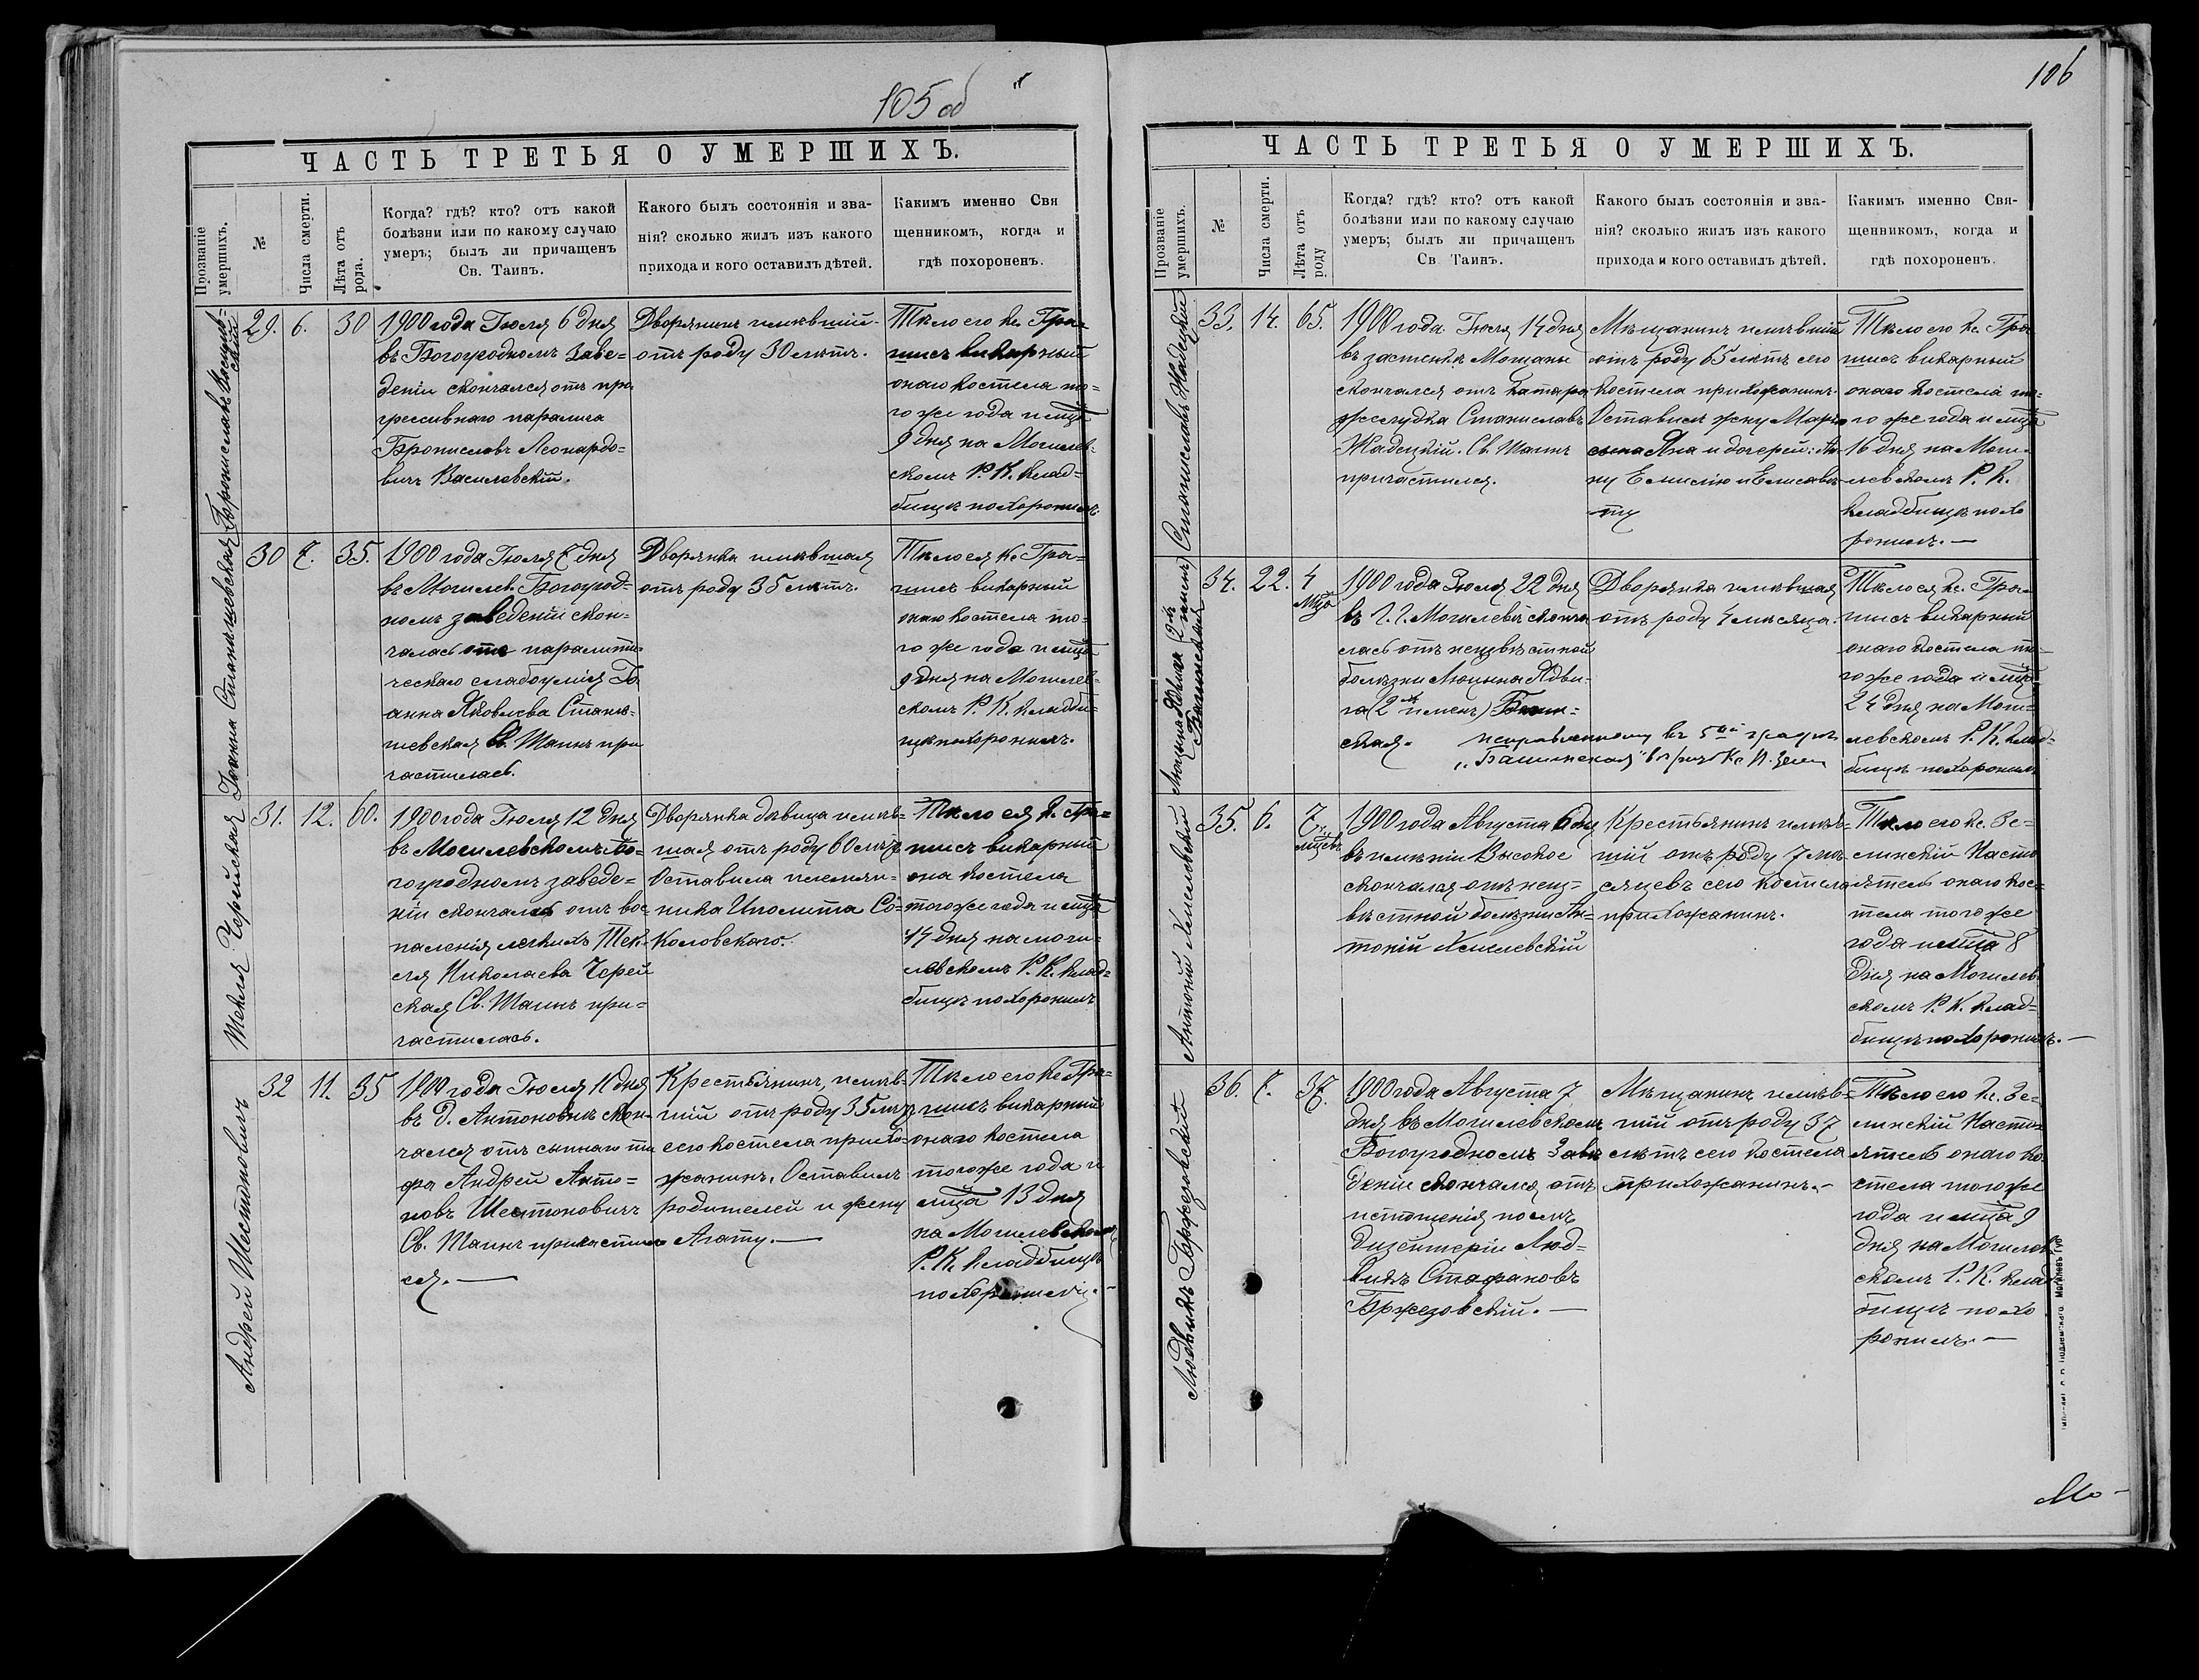 105 об
ЧАСТЬ ТРЕТЬЯ О УМЕРШИХЪ.
Прозваніе умершихъ.
№
Числа смерти.
Лѣта отъ рода.
Когда? гдѣ? кто? отъ какой
болѣзни или по какому случаю
умеръ; былъ ли причащенъ
Св. Таинъ.
Какого былъ состоянія и зва-
нія? сколько жилъ изъ какого
прихода и кого оставилъ дѣтей.
Какимъ именно Свя
щенникомъ, когда и
гдѣ похороненъ.
Брониславъ
29. 6. 30
1900 года Іюля 6 дня
въ Богоугодномъ Заве=
деніи скончался отъ про
грессивнаго паралича
Брониславъ Леонардо=
вичъ Василевскій.
Дворянинъ имѣвшій
отъ роду 30 лѣтъ.
Тѣло его Кс. Гра=
шисъ викарный
онаго костела то=
го же года и мца
9 дня на Могилев=
скомъ Р. К. клад=
бищѣ похоронилъ.
Іоанна Станишевская
30 7. 35.
1900 года Іюля 7 дня
въ Могилев. Богоугод=
номъ заведеніи скон=
чалась отъ паралити=
ческаго слабоумія Іо
анна Яковлева Стани=
шевская Св. Таинъ при
частилась.
Дворянка имѣвшая
отъ роду 35 лѣтъ.
Тѣло ея Кс Гра=
шисъ викарный
онаго костела то=
го же года и мца
9 дня на Могилев=
скомъ Р. К. кладби=
щѣ похоронилъ.
Текля Черейская
31. 12. 60.
1900 года Іюля 12 дня
въ Могилевскомъ Бо=
гоугодномъ заведе=
ніи скончалась отъ вос=
паленія легкихъ Тек=
ля Николаева Черей
ская Св. Таинъ при=
частилась.
Дворянка дѣвица имѣв=
шая отъ роду 60 лѣтъ
Оставила племян=
ника Иполита Со=
коловскаго.
Тѣло ея К. Гра=
шисъ викарный
она костела
того же года и мца
14 дня на моги=
левскомъ Р. К. клад=
бищѣ похоронилъ
Андрей Шестоновичъ
32 11. 35
1900 года Іюля 11 дня
въ Д. Антоновкѣ скон=
чался отъ сыпнаго ти
фа Андрей Анто=
новъ Шестоновичъ
Св. Таинъ причастил
ся.—
Крестьянинъ, имѣв=
шій отъ роду 35 лѣтъ
сего костела прихо=
жанинъ. Оставилъ
родителей и жену
Агату.—
Тѣло его Кс Гра=
шисъ викарный
онаго костела
того же года и
мца 13 дня
на Могилевскомъ
Р. К. кладбищѣ
похоронилъ.
106
ЧАСТЬ ТРЕТЬЯ О УМЕРШИХЪ.
Прозваніе умершихъ.
№
Числа смерти.
Лѣта отъ роду
Когда? гдѣ? кто? отъ какой
болѣзни или по какому случаю
умеръ; былъ ли причащенъ
Св Таинъ.
Какого былъ состоянія и зва-
нія? сколько жилъ изъ какого
прихода и кого оставилъ дѣтей.
Какимъ именно Свя-
щенникомъ, когда и
гдѣ похороненъ.
Станиславъ Жадецкій
33. 14. 65.
1900 года Іюля 14 дня
въ застѣнкѣ Мощаны
скончался отъ катара
желудка Станиславъ
Жадецкій. Св. Таинъ
причастился.
Мѣщанинъ имѣвшій
отъ роду 65 лѣтъ сего
костела прихожанинъ.
Оставилъ жену Марію
сына Яна и дочерей: Ан
ну Емилію и Елисаве
ту
Тѣло его Кс. Гра
шисъ викарный
онаго костела то=
го же года и мца
16 дня на Моги=
левскомъ Р. К.
кладбищѣ похо
ронилъ.—
Люцына Ядвига 2 хъ именъ
34. 22. 4 мца
1900 года Іюля 22 дня
въ Г. Г. Могилевѣ сконча
лась отъ неизвѣстной
болѣзни Люцына Ядви=
га (2 хъ именъ)
ская.
исправленному въ 5ой графѣ
Дворянка имѣвшая
отъ роду 4 мѣсяца.
Тѣло ея Кс. Гра=
шисъ викарный
онаго костела то=
го же года и мца
24 дня на Моги=
левскомъ Р. К. клад=
бищѣ похоронилъ
Антоній Хмелевскій
35. 6. 7. мцевъ
1900 года Августа 6 дня
въ имѣніи Высокое
скончался отъ неиз=
вѣстной болѣзни Ан=
тоній Хмелевскій
Крестьянинъ имѣв=
шій отъ роду 7 мѣ
сяцевъ сего костела
прихожанинъ.
Тѣло его Кс. Зе=
линскій Насто
ятель онаго кос=
тела того же
года и мца 8
дня на Могилев
скомъ Р. К. клад=
бищѣ похоронилъ.—
Людвикъ Бржезовскій
36. 7. 37.
1900 года Августа 7
дня въ Могилевскомъ
Богоугодномъ Заве
деніи скончался отъ
истощенія послѣ
дизентеріи Люд=
викъ Стефановъ
Бржезовскій.—
Мѣщанинъ имѣв=
шій отъ роду 37
лѣтъ сего костела
прихожанинъ.—
Тѣло его Кс. Зе=
линскій Насто=
ятель онаго ко
стела того же
года и мца 9
дня на Могилев
скомъ Р. К. клад
бищѣ похо
ронилъ.—